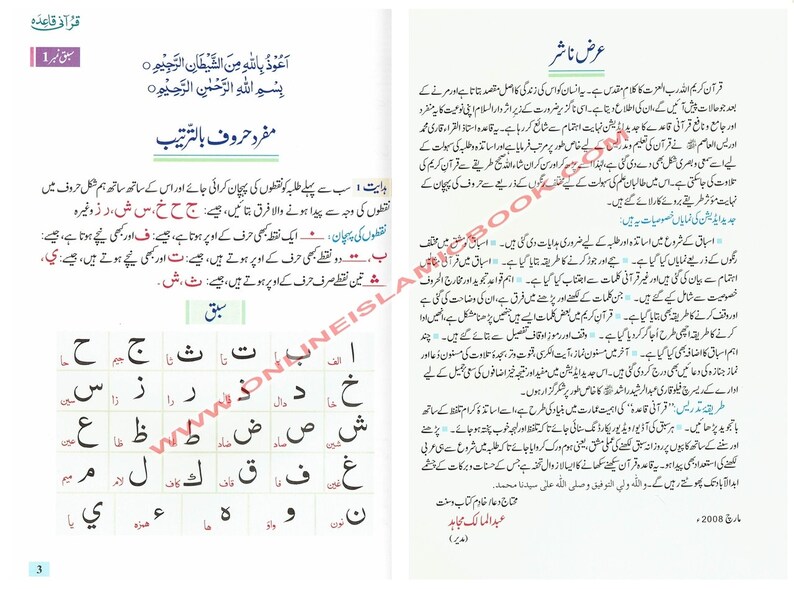 قرآنی قاعدہ
سبق نمبر 1
اَعُوْذُ بِاللّٰهِ مِنَ الشَّيْطَانِ الرَّجِيْمِ
بِسْمِ اللّٰهِ الرَّحْمٰنِ الرَّحِيْمِ
مفرد حروف بالترتیب
ہدایت 1 سب سے پہلے طلبہ کو نقطوں کی پہچان کرائی جائے اور اس کے ساتھ ساتھ ہم شکل حروف میں
نقطوں کی وجہ سے پیدا ہونے والا فرق بتائیں، جیسے: ج ح خ، س ش، ر ز وغیرہ
نقطوں کی پہچان: ایک نقطہ کبھی حرف کے اوپر ہوتا ہے، جیسے: ف اور کبھی نیچے ہوتا ہے، جیسے:
ب، دو نقطے کبھی حرف کے اوپر ہوتے ہیں، جیسے: ت اور کبھی نیچے ہوتے ہیں، جیسے: ي،
تین نقطے صرف حرف کے اوپر ہوتے ہیں، جیسے: ث، ش۔
سبق
ا الف ب با ت تا ث ثا ج جیم ح حا
خ خا د دال ذ ذال ر را ز زا س سین
ش شین ص صاد ض ضاد ط طا ظ ظا ع عین
غ غین ف فا ق قاف ك کاف ل لام م میم
ن نون و واؤ ه ھا ء ھمزہ ي یا
3
عرض ناشر
قرآن کریم اللہ رب العزت کا کلام مقدس ہے۔ یہ انسان کو اس کی زندگی کا اصل مقصد بتاتا ہے اور مرنے کے
بعد جو حالات پیش آئیں گے، ان کی اطلاع دیتا ہے۔ اسی ناگزیر ضرورت کے زیر اثر دارالسلام اپنی نوعیت کا یہ منفرد
اور جامع و نافع قرآنی قاعدے کا جدید ایڈیشن نہایت اہتمام سے شائع کر رہا ہے۔ یہ قاعدہ استاذ القراء قاری محمد
ادریس العاصم نے قرآن کی تعلیم و تدریس کے لیے خاص طور پر مرتب فرمایا ہے اور اساتذہ و طلبہ کی سہولت کے
لیے اسے سمعی و بصری شکل بھی دے دی گئی ہے، لہٰذا اسے پڑھ کر اور سن کر ان شاء اللہ صحیح طریقے سے قرآن کریم کی
تلاوت کی جا سکتی ہے۔ اس میں طالبان علم کی سہولت کے لیے مختلف رنگوں کے ذریعے سے حروف کی پہچان کے
نہایت مؤثر طریقے بروئے کار لائے گئے ہیں۔
جدید ایڈیشن کی نمایاں خصوصیات یہ ہیں:
اسباق کے شروع میں اساتذہ اور طلبہ کے لیے ضروری ہدایات دی گئی ہیں۔ اسباق کی مشق میں مختلف
رنگوں کے ذریعے نمایاں کیا گیا ہے۔ ہجے اور جوڑ کرنے کا طریقہ بتایا گیا ہے۔ اسباق میں قرآنی مثالیں
اہتمام سے بیان کی گئی ہیں اور غیر قرآنی کلمات سے اجتناب کیا گیا ہے۔ اہم قواعد تجوید اور مخارج الحروف
خصوصیت سے شامل کیے گئے ہیں۔ جن کلمات کے لکھنے اور پڑھنے میں فرق ہے، ان کی وضاحت کی گئی ہے
کرنے کا طریقہ بھی بتایا گیا ہے۔ قرآن کریم میں بعض کلمات ایسے ہیں جنھیں پڑھنا مشکل ہے، انھیں ادا
کرنے کا طریقہ اچھی طرح اجاگر کر دیا گیا ہے۔ وقف اور رموز اوقاف تفصیل سے بتائے گئے ہیں۔ چند
اہم اسباق کا اضافہ کیا گیا ہے۔ آخر میں مسنون نماز، آیت الکرسی، قنوت وتر، سجدۂ تلاوت کی مسنون دعا اور
نماز جنازہ کی دعائیں بھی درج کر دی گئی ہیں۔ اس جدید ایڈیشن میں مفید اور نتیجہ خیز اضافوں کی سعی جمیل کے لیے
ادارے کے ریسرچ فیلو قاری عبدالرشید راشد کا خاص طور پر شکر گزار ہوں۔
طریقۂ تدریس: ”قرآنی قاعدہ“ کی اہمیت عمارت میں بنیاد کی طرح ہے، اسے اساتذۂ کرام تلفظ کے ساتھ
باتجوید پڑھائیں۔ ہر سبق کی آڈیو/ویڈیو ریکارڈنگ سنائی جائے تاکہ تلفظ اور لہجہ خوب پختہ ہو جائے۔ پڑھنے
اور سننے کے ساتھ کاپیوں پر روزانہ سبق لکھنے کی عملی مشق، یعنی ہوم ورک کروایا جائے تاکہ طلبہ میں شروع ہی سے عربی
لکھنے کی استعداد بھی پیدا ہو۔ یہ قاعدہ قرآن سیکھنے سکھانے کا ایسا لازوال تحفہ ہے جس کے حسنات و برکات کے چشمے
ابدالآباد تک پھوٹتے رہیں گے۔ واللہ ولي التوفيق وصلى الله على سيدنا محمد.
محتاج دعا/خادم کتاب و سنت
عبدالمالک مجاہد
(مدیر)
مارچ 2008ء
WWW.ONLINEISLAMICBOOK.COM